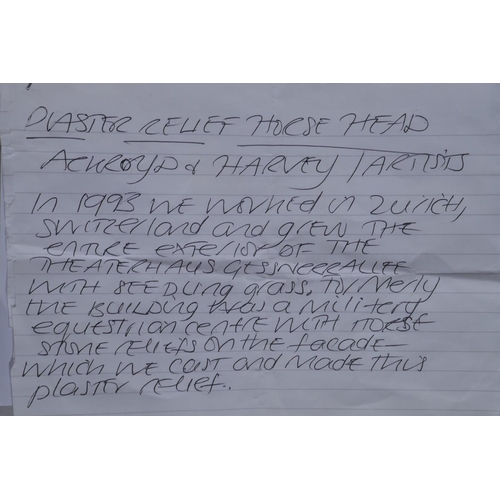 PLASTER RELIEF HORSE HEAD
ACKROYD & HARVEY / ARTISTS
In 1993 we worked in Zurich,
Switzerland and grew the
entire exterior of the
Theaterhaus Gessnerallee
with seedling grass, formerly
the building was a military
equestrian centre with horse
stone reliefs on the facade –
which we cast and made this
plaster relief.